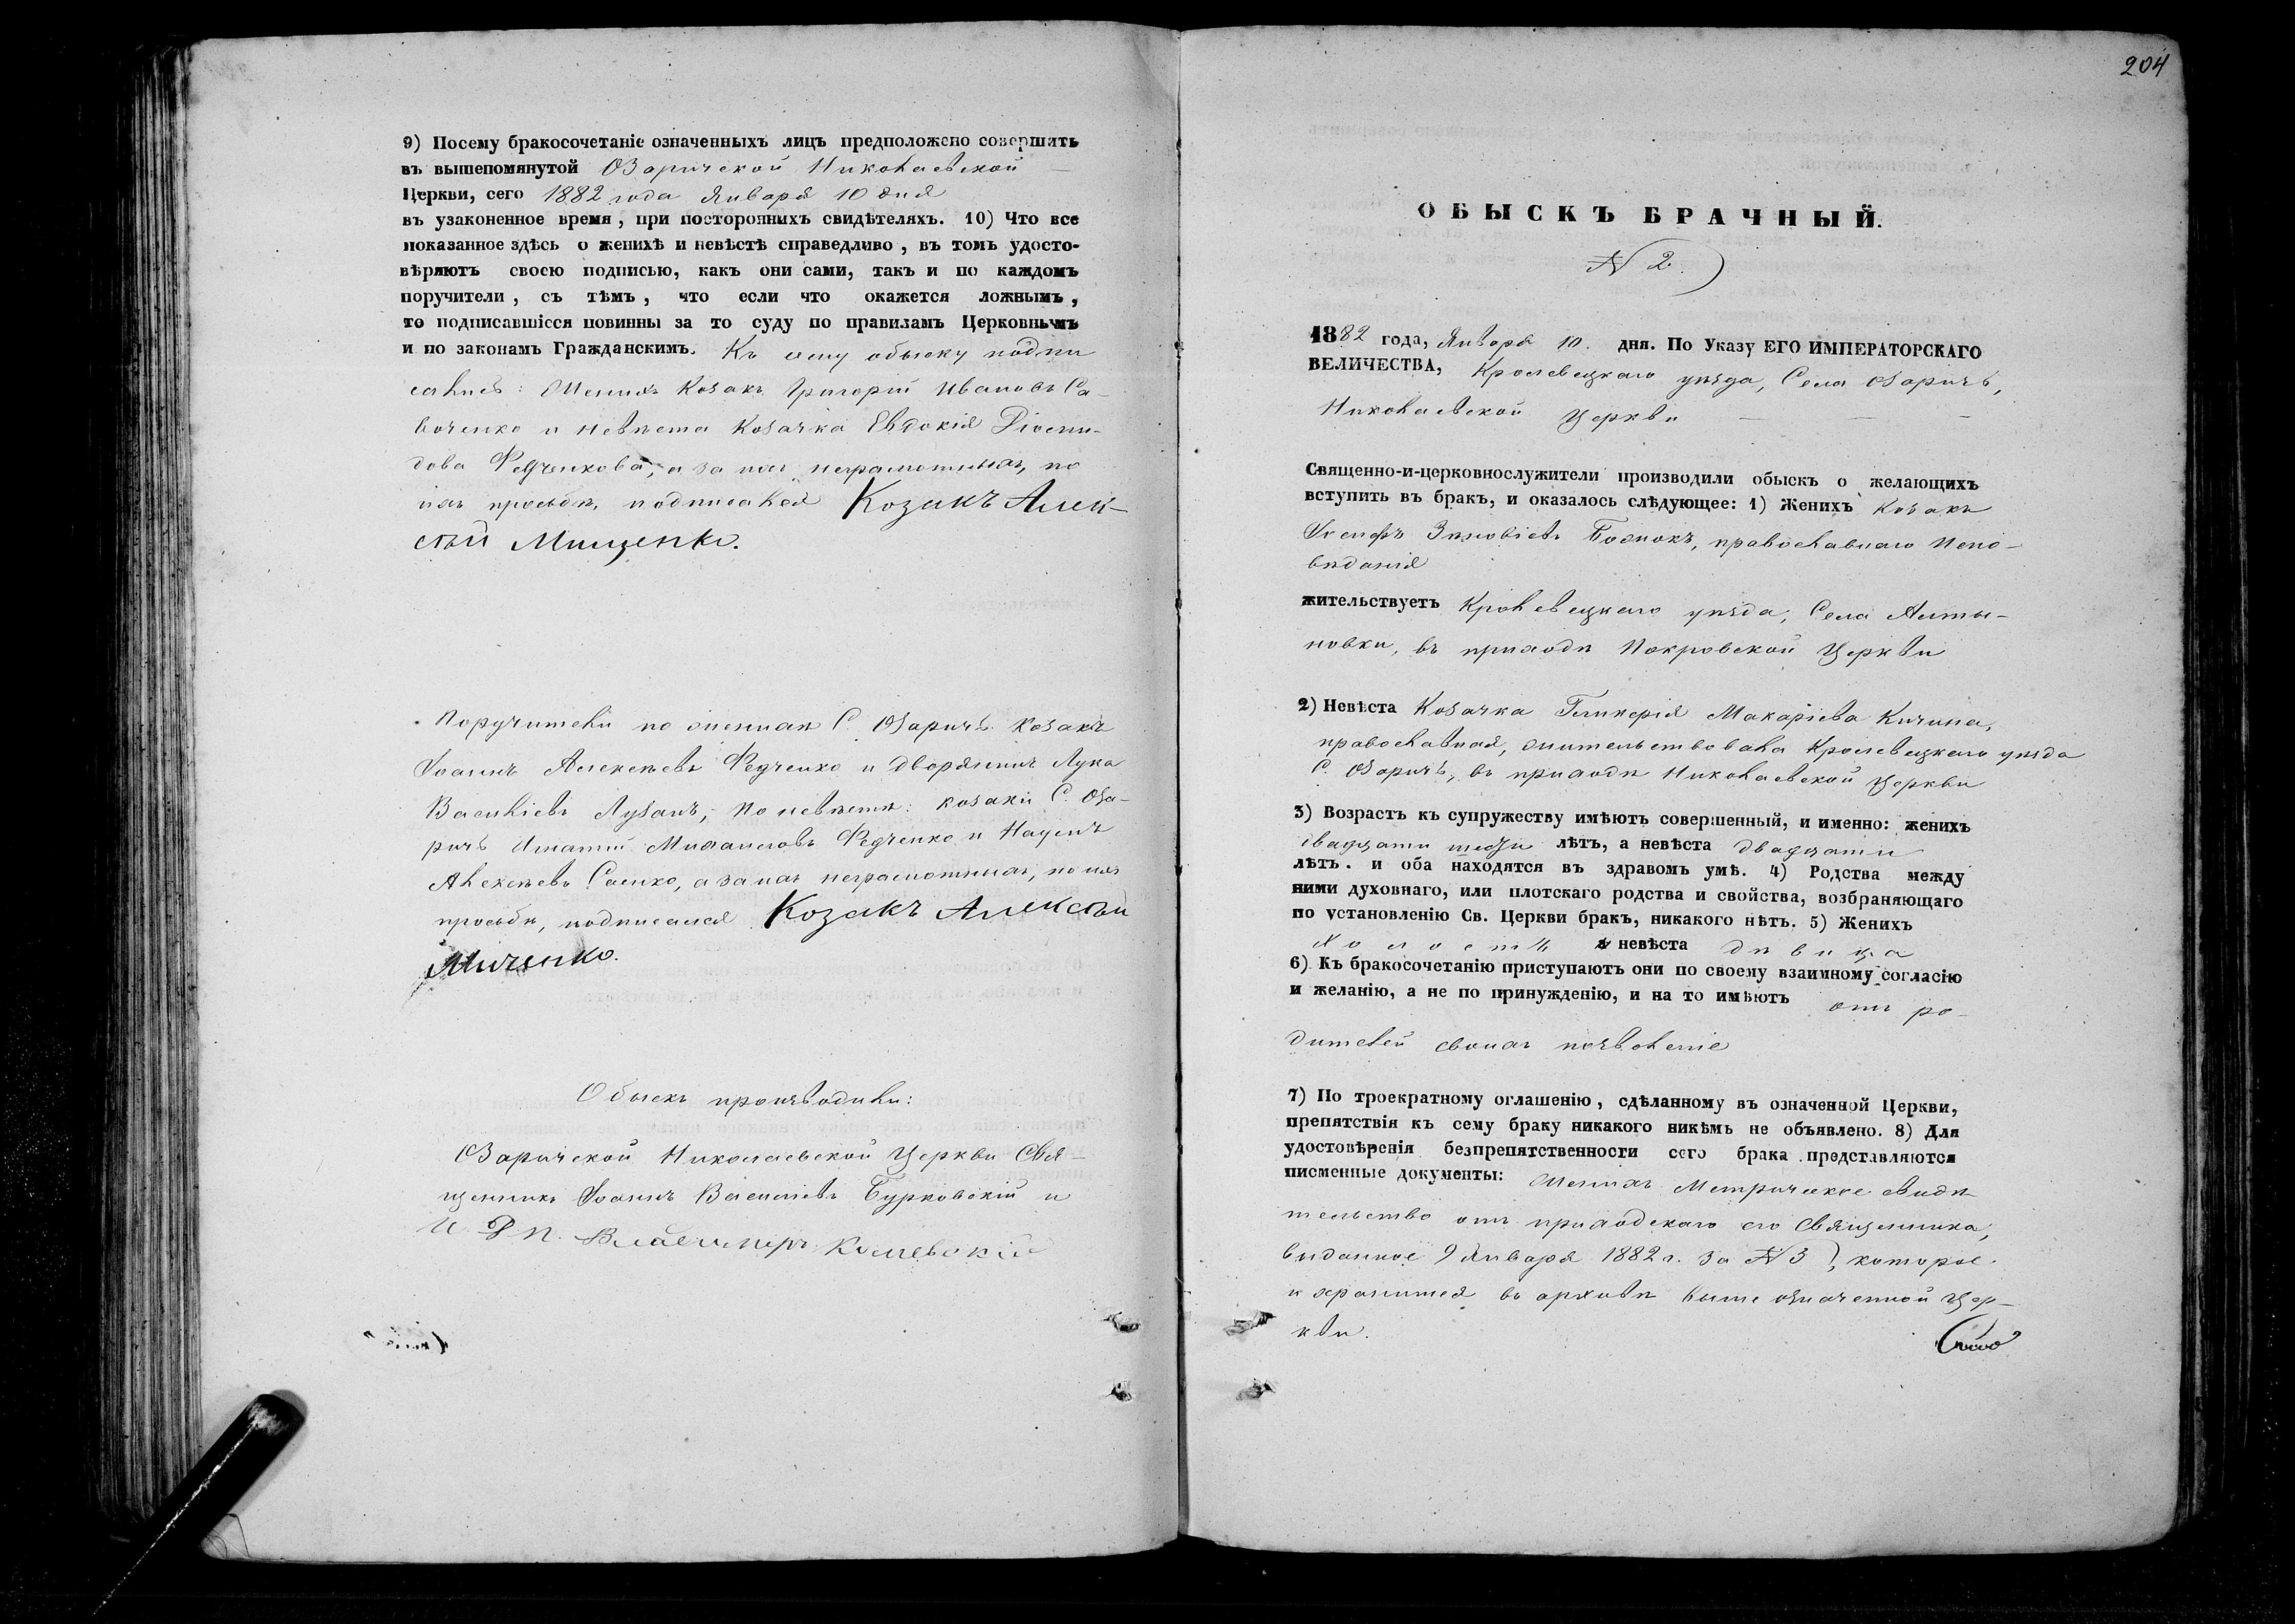 9) Посему бракосочетаніе означенныхъ лицъ предположено совершить
въ вышепомянутой Озаричской Николаевской
Церкви, сего 1882 года Января 10 дня
въ узаконенное время, при постороннихъ свидѣтеляхъ. 10) Что все
показанное здѣсь о женихѣ и невѣстѣ справедливо, въ томъ удосто-
вѣряютъ своею подписью, какъ они сами, такъ и по каждомъ
поручители, съ тѣмъ, что если что окажется ложнымъ,
то подписавшіеся повинны за то суду по правиламъ Церковнымъ
и по законамъ Гражданскимъ. Къ сему обыску подпи
сались: Женихъ Козакъ Григорій Ивановъ Са-
воченко и невѣста Козачка Евдокія Діоми-
дова Федченкова, а за нихъ неграмотныхъ, по
ихъ просьбѣ, подписался Козакъ Алек-
сѣй Мищенко.
Поручители по женихѣ С. Озаричъ Козакъ
Іоаннъ Алексѣевъ Федченко и дворянинъ Лука
Васильевъ Лузанъ, По невѣстѣ: козаки С. Оза-
ричъ Игнатій Михаиловъ Федченко и Наумъ
Алексѣевъ Саенко, а за нихъ неграмотныхъ, по ихъ
просьбѣ, подписался Козакъ Алексѣй
Миченко.
Обыскъ производили:
Озаричской Николаевской Церкви Свя-
щенникъ Іоаннъ Васильевъ Бурковскій и
И. Д. П. Владимиръ
204
ОБЫСКЪ БРАЧНЫЙ.
N 2.
1882 года, Января 10. дня. По Указу ЕГО ИМПЕРАТОРСКАГО
ВЕЛИЧЕСТВА, Кролевецкаго уѣзда, Села Озаричъ,
Николаевской Церкви
Священно-и-церковнослужители производили обыскъ о желающихъ
вступить въ бракъ, и оказалось слѣдующее: 1) Женихъ Козакъ
Іосифъ Зиновіевъ Божокъ, православнаго Испо-
вѣданія
жительствуетъ Кролевецкаго уѣзда, Села Алты-
новки, въ приходѣ Покровской Церкви
2) Невѣста Козачка Гликерія Макаріева Кичина,
православная, жительствовала Кролевецкаго уѣзда
С. Озаричъ, въ приходѣ Николаевской Церкви
3) Возрастъ къ супружеству имѣютъ совершенный, и именно: женихъ
двадцати лѣтъ, а невѣста двадцати
лѣтъ. и оба находятся въ здравомъ умѣ. 4) Родства между
ними духовнаго, или плотскаго родства и свойства, возбраняющаго
по установленію Св. Церкви бракъ, никакого нѣтъ. 5) Женихъ
холостъ а невѣста дѣвица
6) Къ бракосочетанію приступаютъ они по своему взаимному согласію
и желанію, а не по принужденію, и на то имѣютъ отъ ро-
дителей своихъ позволеніе
7) По троекратному оглашенію, сдѣланному въ означенной Церкви,
препятствія къ сему браку никакого никѣмъ не объявлено. 8) Для
удостовѣренія безпрепятственности сего брака представляются
писменные документы: Женихъ Метрическое свидѣ
тельство отъ приходскаго его Священника,
выданное 9 Января 1882 г. за N 3), которое
и хранится въ архивѣ выше означенной Цер-
кви.